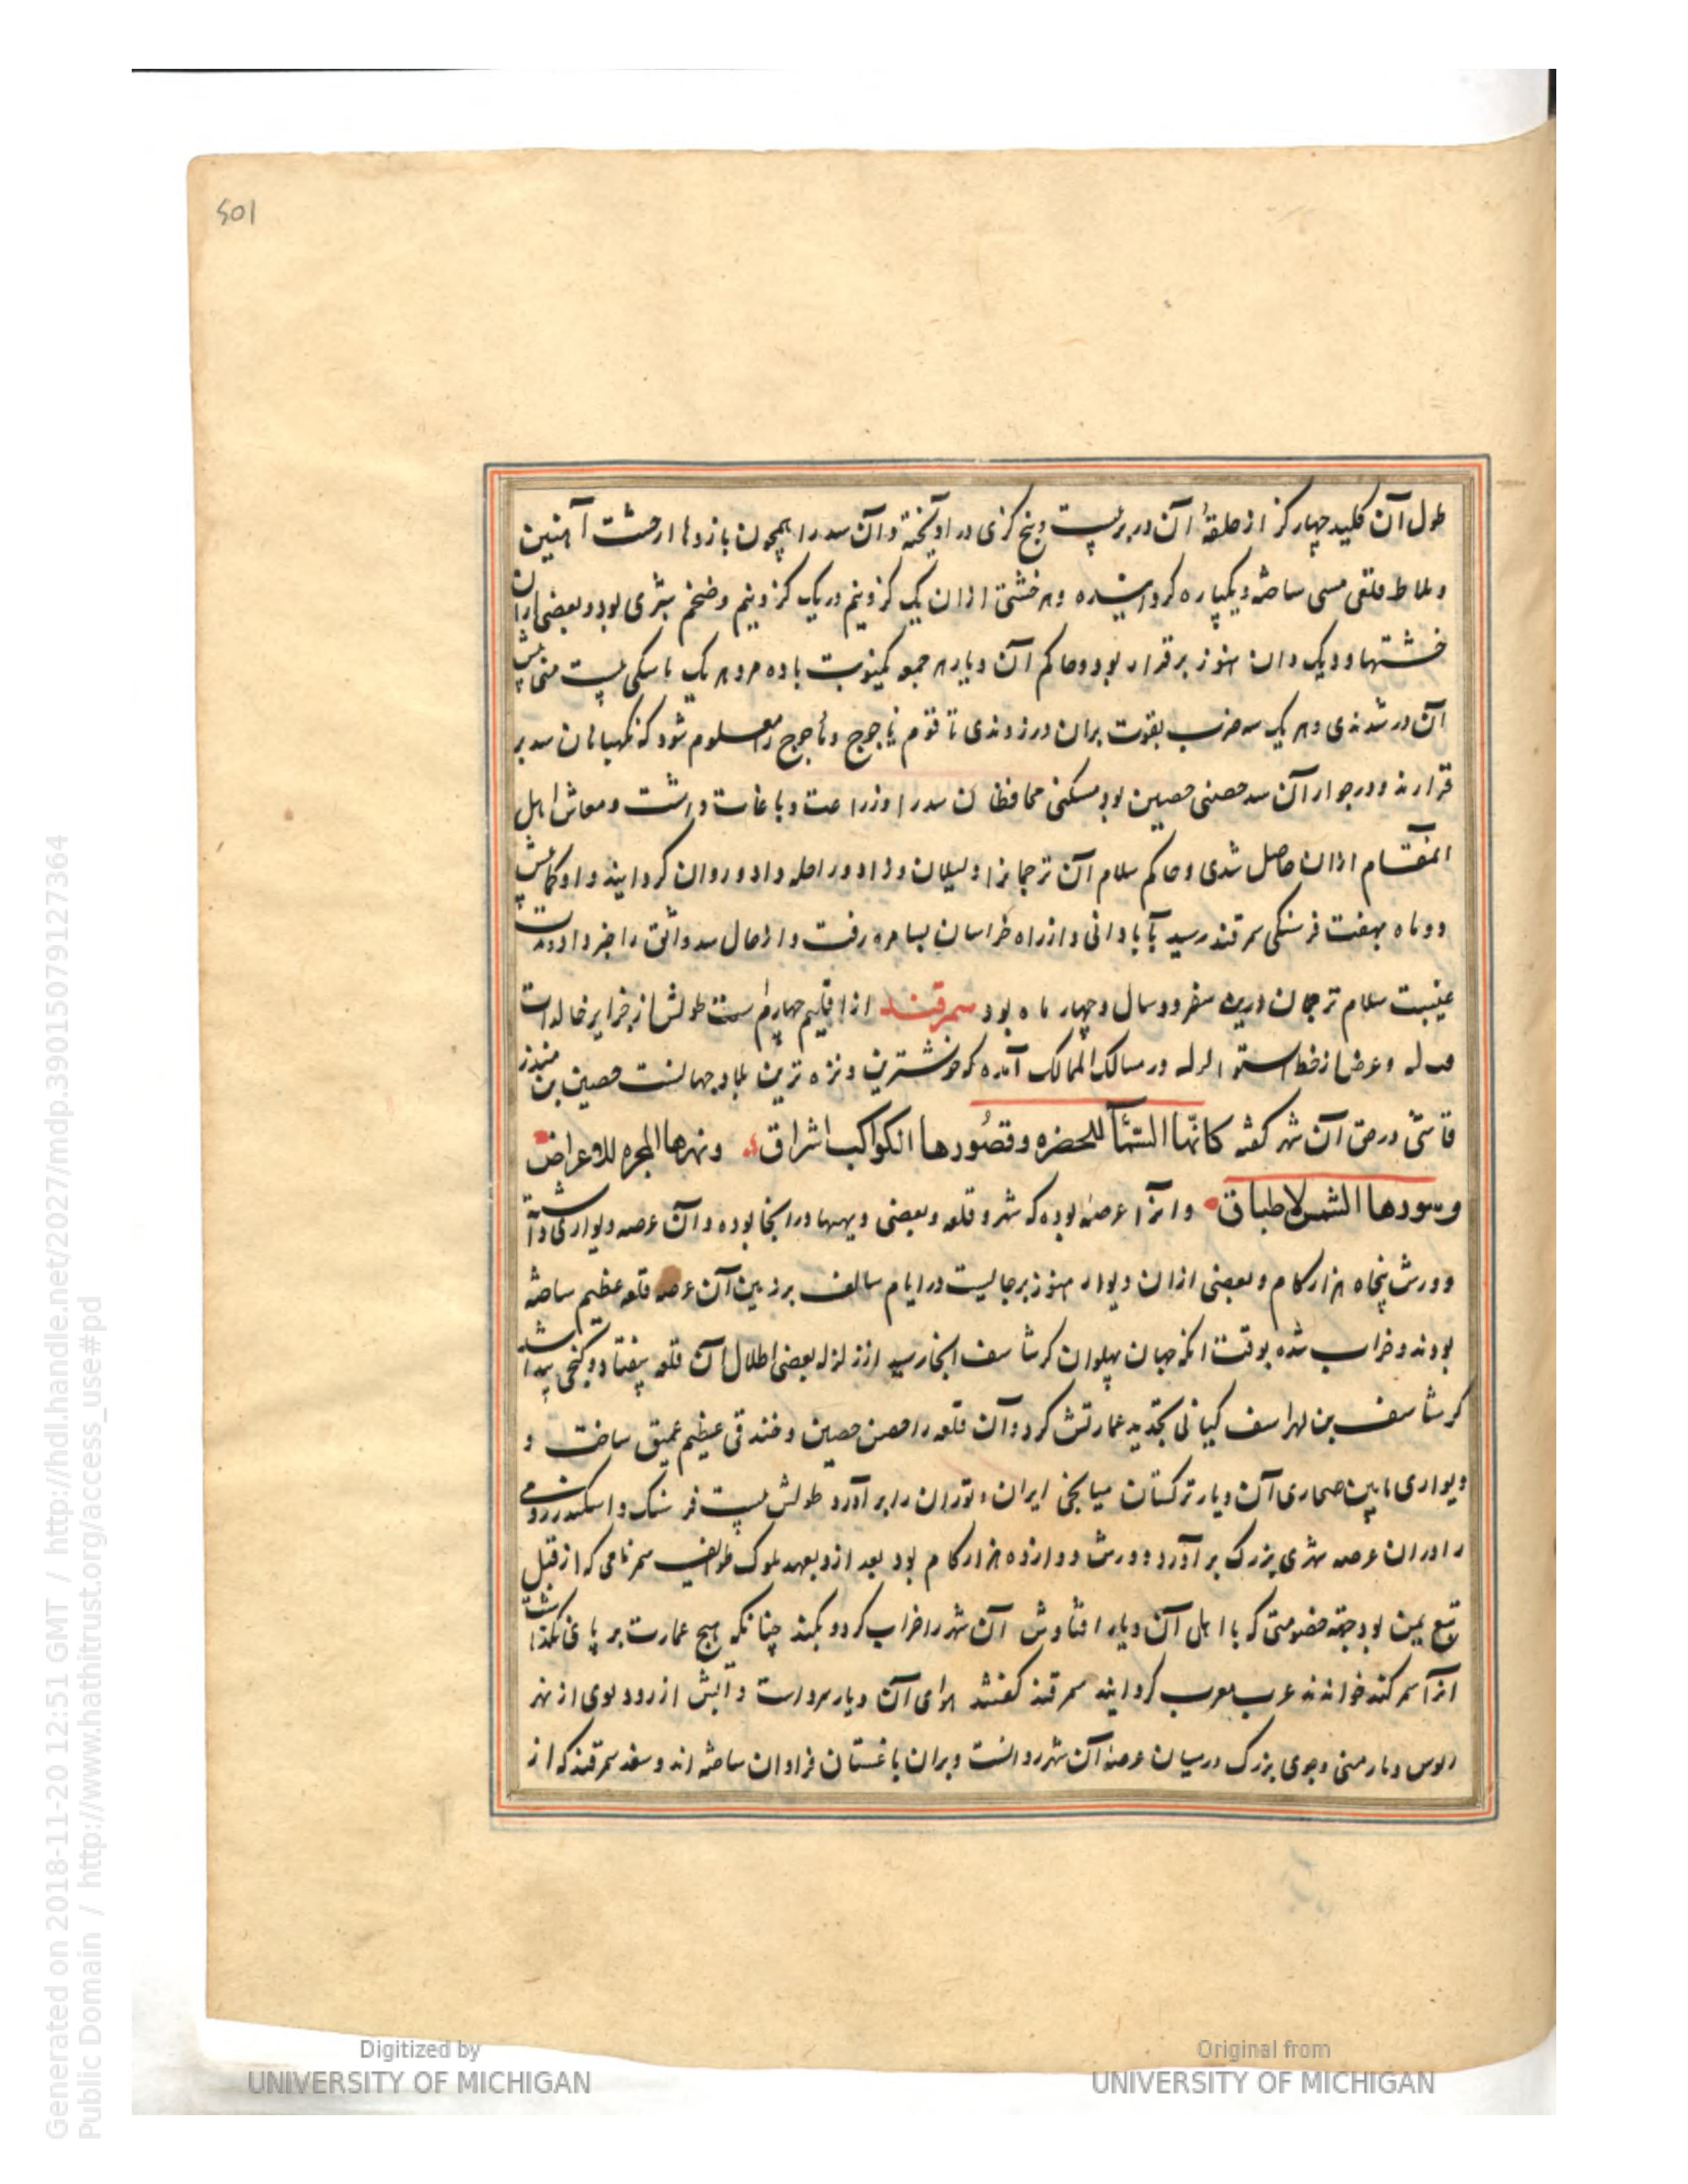 501
طول آن کلید چهار کز از حلقهٔ آن در بر پست و پنج کزی در آویخته و آن سد را همچون بازوها از خشت آهنین
و ملاط قلقی مسی ساخته و یکپاره کردانیده و هر خشتی ازان یک کز و نیم در یک کز و نیم و ضخم شبری بود و بعضی ازان
خشتها و دیک دان هنوز برقرار بود و حاکم آن دیار هر جمعه کینوبت با ده مرد هر یک با سکی پست منی پیش
آن در شدندی و هر یک سه ضرب بقوت بران در زدندی تا قوم یاجوج و ماجوج را معلوم شود که نکهبانان سد بر
قرارند و در جوار آن سد حصنی حصین بود مسکن محافظان سد را و زراعت و باغات داشت و معاش اهل
انمقام ازان حاصل شدی و حاکم سلام آن ترجمانرا دلیلان و زاد و راحله داد و روان کردانید و او کمابیش
دو ماه بهفت فرسنکی سمرقند رسید بآبادانی و از راه خراسان بسامره رفت و از حال سد واثق را خبر داد و مدت
غیبت سلام ترجمان درین سفر دو سال و چهار ماه بود سمرقند از اقلیم چهارم است طولش از جزایر خالدات
و عرض از خط استوا در مسالک الممالک آمده که خوشترین و نزه ترین بلاد جهانست حصین بن منذر
در حق آن شهر کفته کانها السمآ للخضره وقصورها الکواکب اشراق ونهرها المجره للاعراض
وسورها الشمس لاطباق و انرا عرصه بوده که شهر و قلعه و بعضی دیهها درانجا بوده و آن عرصه دیواری داشته
دورش پنجاه هزار کام و بعضی ازان دیوار هنوز برجایست در ایام سالف بر زمین آن عرصه قلعه عظیم ساخته
بودند و خراب شده بوقت انکه جهان پهلوان کرشاسف انجا رسید از زلزله بعضی اطلال آن قلعه بیفتاد و کنجی پیدا شد
کرشاسف بن لهراسف کیانی بتجدید عمارتش کرد و آن قلعه را حصن حصین و خندقی عظیم عمیق ساخت و
دیواری مابین صحاری آن دیار ترکستان میانجی ایران و توران را بر آورد طولش پست فرسنک و اسکندر رومی
را دران عرصه شهری بزرک بر آورد دورش دوازده هزار کام بود بعد ازو بعهد ملوک طوایف سمر نامی که از قبل
تبع یمن بود جهة خصومتی که با اهل آن دیار افتادش آن شهر را خراب کرد و بکند چنانکه هیچ عمارت بر پای نکذاشت
انرا سمرکند خواندند عرب معرب کردانید سمرقند کفتند هوای آن دیار سرد است و آبش از رود بوی از نهر
و جوی بزرک در میان عرصه آن شهر روانست و بران باغستان فراوان ساخته اند و سغد سمرقند که از
Digitized by
UNIVERSITY OF MICHIGAN
Original from
UNIVERSITY OF MICHIGAN
Generated on 2018-11-20 12:51 GMT / http://hdl.handle.net/2027/mdp.39015079127364
Public Domain / http://www.hathitrust.org/access_use#pd